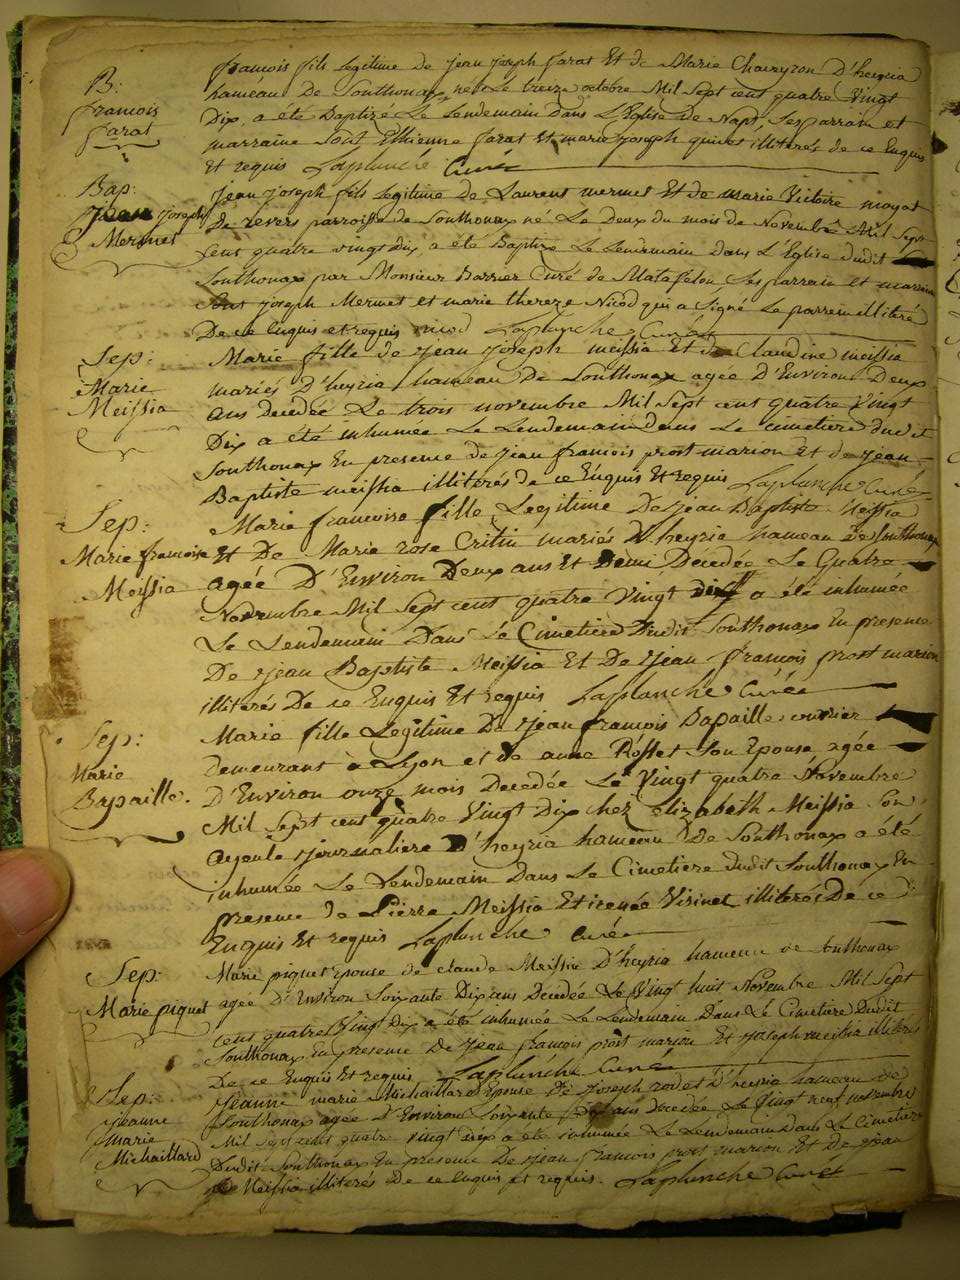 B:
francois
farat
francois fils legitime de jean joseph farat Et de Marie Chaveyron D'heyria
hameau De Southonax né Le treize octobre Mil Sept cent quatre Vingt
Dix, a été Baptizé Le Lendemain dans L'Eglise de Napt, Ses parrain et
marraine Sont Ethienne farat Et marie joseph illiterés de ce Enquis
Et requis Laplanche Curé
Bap:
Jean Joseph
Mermet
Jean Joseph fils Legitime De Laurent mermet Et de marie Victoire moyat
De revers parroisse de Southonax né Le deux du mois de Novembre Mil Sept
cens quatre vingt Dix, a été Baptizé Le Lendemain dans L'Eglise dudit
Southonax par Monsieur Barrier Curé de Matafelon, Ses parrain et marraine
Sont joseph Mermet et marie thereze Nicod qui a Signé Le parrein illiteré
De ce Enquis et requis nicod Laplanche Curé
Sep:
Marie
Meissia
Marie fille de jean joseph meissia Et de Claudine meissia
mariés D'heyria hameau De Southonax agée D'Environ Deux
ans decedée Le trois novembre Mil Sept cent quatre Vingt
Dix a été inhumée Le Lendemain dans Le cimetiere dudit
Southonax En presence de jean francois prost marion Et de jean
Baptiste meissia illiterés de ce Enquis Et requis Laplanche Curé
Sep:
Marie francoise
Meissia
Marie francoise fille Legitime De jean Baptiste Meissia
Et De Marie rose Critin mariés D'heyria hameau De Southonax
agée D'Environ Deux ans Et Demi Decedée Le Quatre
Novembre Mil Sept cent quatre Vingt dix a été inhumée
Le Lendemain Dans Le Cimetiere Dudit Southonax En presence
De jean Baptiste Meissia Et De jean francois prost marion
illiterés De ce Enquis Et requis Laplanche Curée
Sep:
Marie
Bapaille.
Marie fille Legitime De jean francois Bapaille ouvrier
Demeurant à Lyon et de anne Rosset Son Epouse, agée
D'Environ onze mois Decedée Le Vingt quatre Novembre
Mil Sept cent quatre Vingt Dix chez Elizabeth Meissia Son
ayeule journaliere D'heyria hameau De Southonax a été
inhumée Le Lendemain Dans Le Cimetiere dudit Southonax En
presence de Pierre Meissia Et illiterés De ce
Enquis Et requis Laplanche Curée
Sep:
Marie piquet
Marie piquet Epouse de claude Meissia D'heyria hameau de Southonax
agée D'Environ Soixante Dix ans Decedée Le Vingt huit Novembre Mil Sept
cens quatre Vingt Dix a été inhumée Le Lendemain Dans Le Cimetiere Dudit
Southonax En presence De jean francois prost marion Et joseph meissia illiterés
De ce Enquis Et requis Laplanche Curé
Sep:
jeanne
marie
Michaillard
jeanne marie Michaillard Epouse De joseph rodet D'heyria hameau de
Southonax agée D'Environ Soixante ans Decedée Le Vingt neuf novembre
Mil Sept cens quatre Vingt Dix a été inhumée Le Lendemain Dans Le Cimetiere
Dudit Southonax En presence De jean francois prost marion Et De jean
Meissia illiterés De ce Enquis et requis. Laplanche Curé